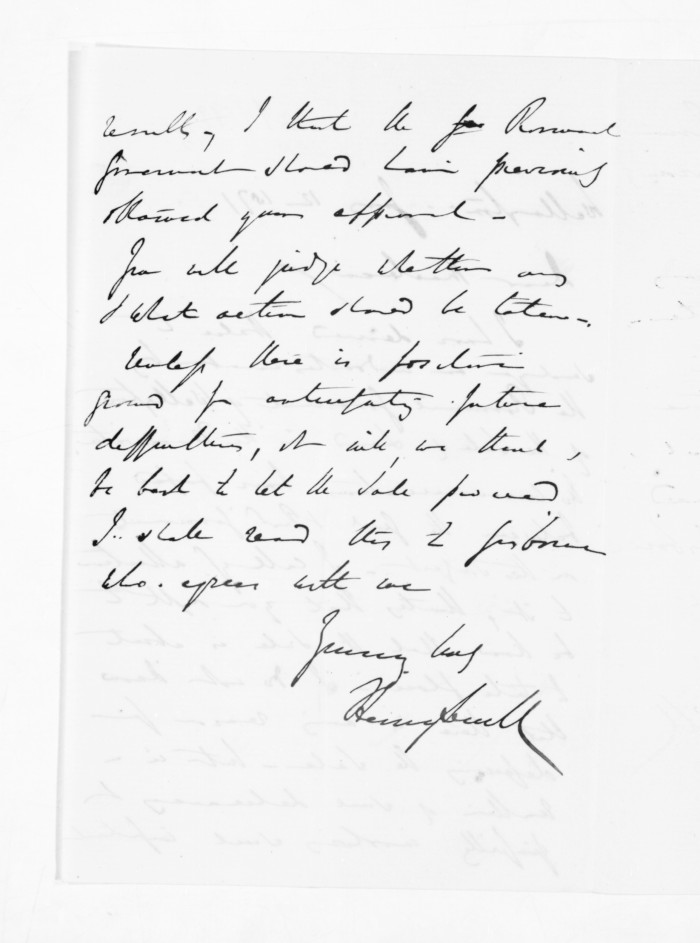 results, & that the Provincial
Government should have previously
obtained your approval –
You will judge whether any
& what action should be taken –.
Unless there is positive
ground for anticipating future
difficulties, it will, we think,
be best to let the Sale proceed
I.. shall read this to Gisborne
who. agrees with me
Yours truly
Henry Sewell